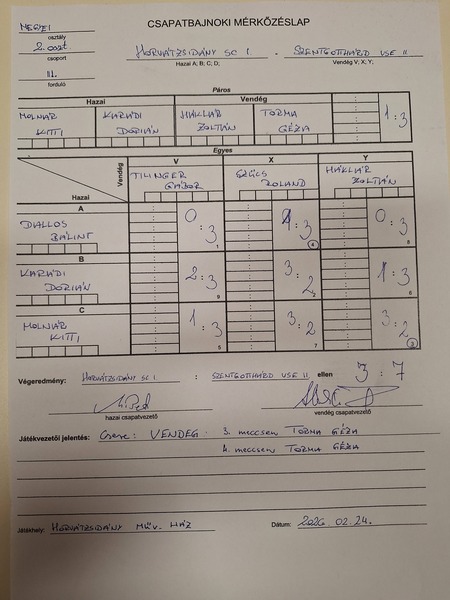 CSAPATBAJNOKI MÉRKŐZÉSLAP
MEGYEI
osztály
2. oszt
csoport
III.
forduló
HORVÁTZSIDÁNY SC I. - SZENTGOTTHÁRD VSE II
Hazai A; B; C; D; Vendég V; X; Y;
Páros
Hazai Vendég
MOLNÁR KITTI
KARÁDI DORIÁN
HÁKLÁR ZOLTÁN
TORMA GÉZA
1:3
Egyes
Vendég
Hazai
V X Y
TILINGER GÁBOR
SZŰCS ROLAND
HÁKLÁR ZOLTÁN
A
DALLOS BÁLINT
0:3 1
:3 4
0:3 8
B
KARÁDI DORIÁN
2:3 9
3:2 2
1:3 6
C
MOLNÁR KITTI
1:3 5
3:2 7
3:2 3
Végeredmény: HORVÁTZSIDÁNY SC I. : SZENTGOTTHÁRD VSE II. ellen 3:7
hazai csapatvezető vendég csapatvezető
Játékvezetői jelentés: Csere: VENDÉG - 3. meccsen TORMA GÉZA
4. meccsen TORMA GÉZA
Játékhely: HORVÁTZSIDÁNY MŰV. HÁZ Dátum: 2026. 02. 24.